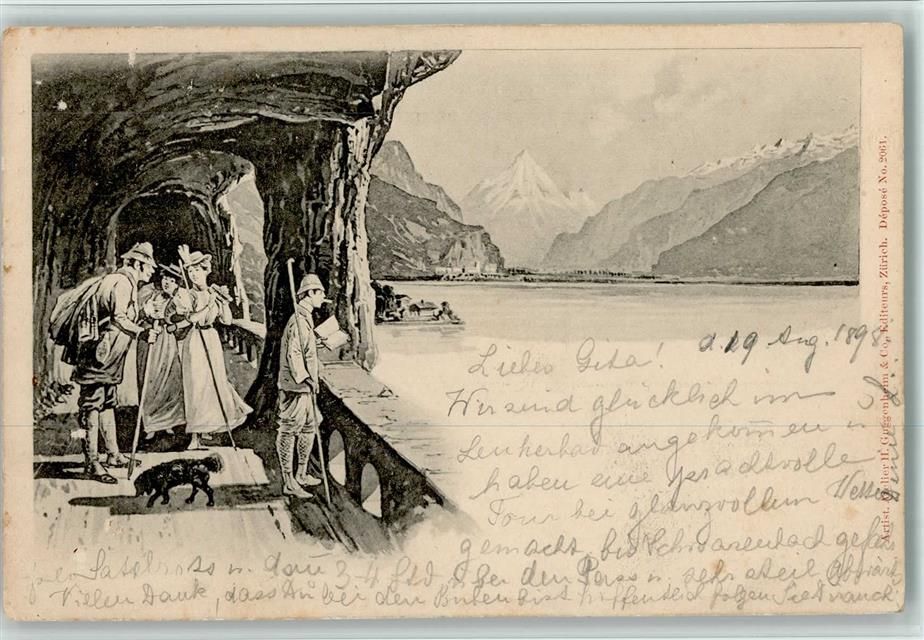 Liebes Gita! d. 19 Aug. 1898
Wir sind glücklich im
Leukerbad angekommen u
haben eine prachtvolle
Tour bei glanzvollem Wetter
gemacht, bis Schwarenbach
u. dann 3-4 Std über den Pass u. sehr steil abwärts
Vielen Dank, dass Du bei den Buben bist hoffentlich folgen Sie
Artist. Atelier H. Guggenheim & Co., Editeurs, Zürich. Déposé No. 2061.